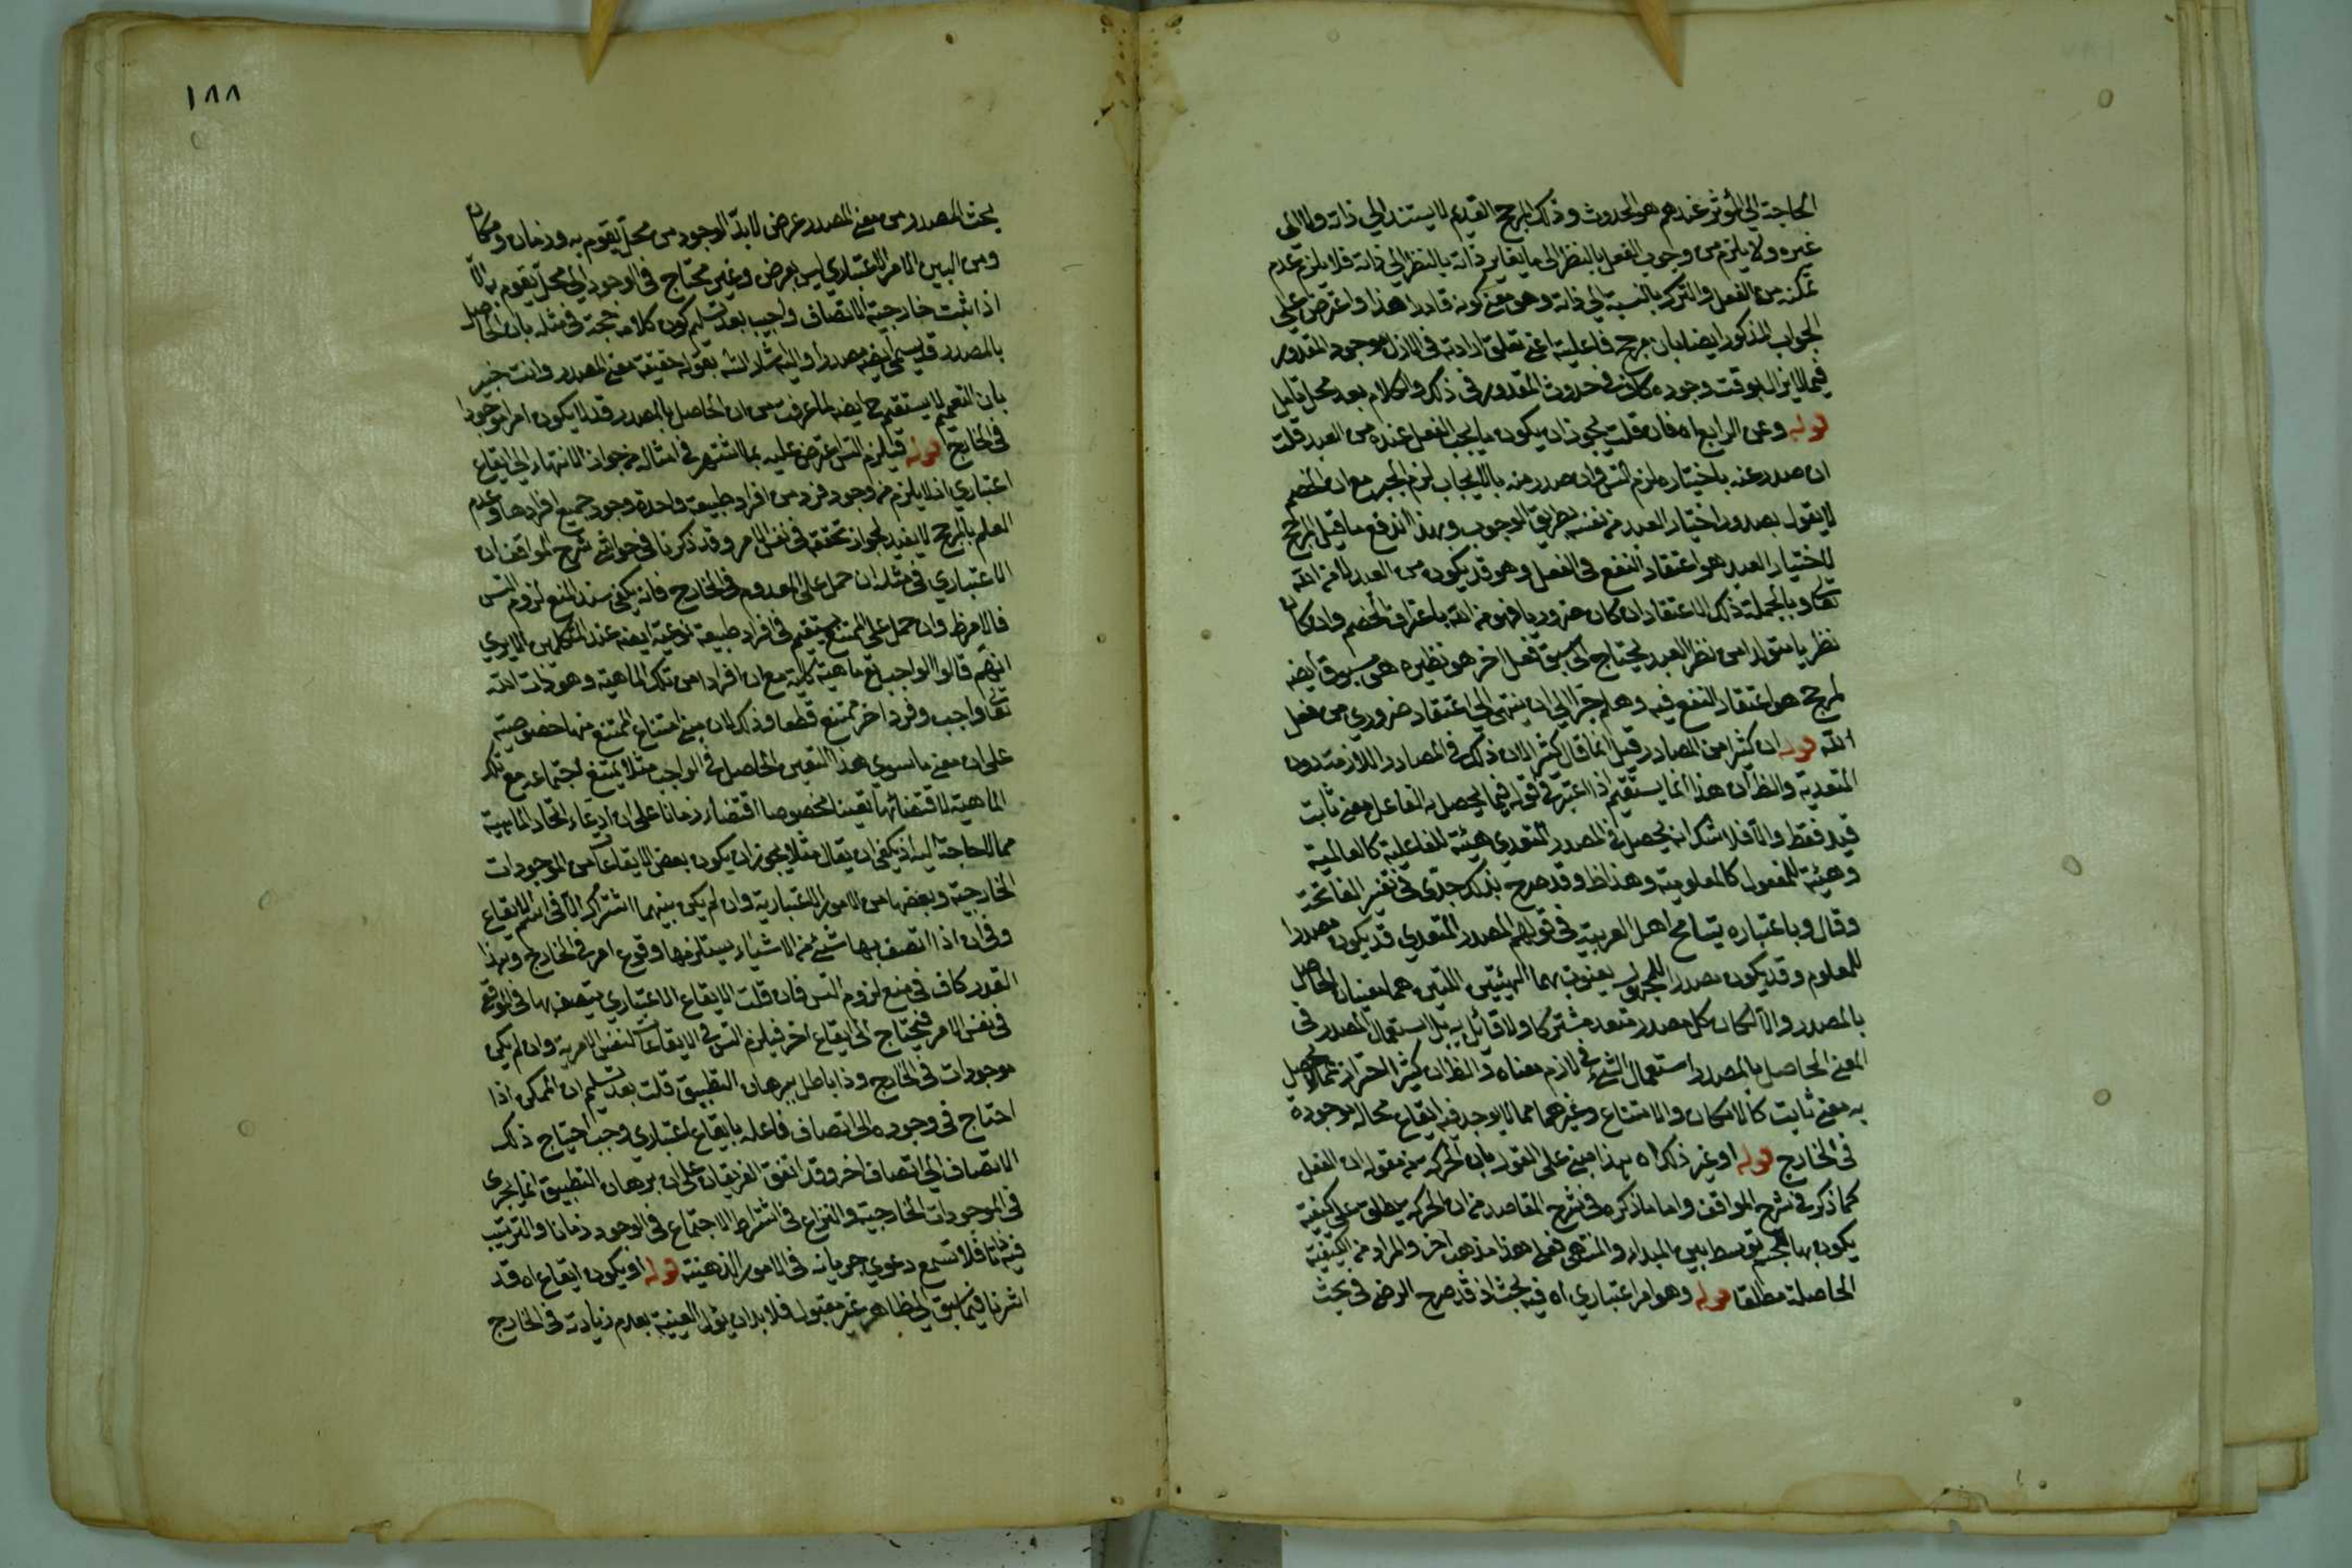 الحاجة الى المؤثر عندهم هو الحدوث وذلك المرجح القديم لا يستند الى ذاته ولا الى
غيره ولا يلزم من وجوب الفعل بالنظر الى ما يغاير ذاته بالنظر الى ذاته فلا يلزم عدم
تمكنه من الفعل والترك بالنسبة الى ذاته وهو معنى كونه قادرا هذا واعترض على
الجواب المذكور ايضا بان مرجح فاعليته اعنى تعلق ارادته فى الازل بوجود المقدور
فيما لا يزال بوقت وجوده كاف فى حدوث المقدور فى ذلك والكلام بعد محل تامل
قوله وعن الرابع اه فان قلت يجوز ان يكون ما يجب الفعل عنده من العبد قلت
ان صدر عنه باختياره لزم التس وان صدر منه بالايجاب لزم الجبر مع ان الخصم
لا يقول بصدور اختيار العبد من نفسه بطريق الوجوب وبهذا اندفع ما قيل المرجح
لاختيار العبد هو اعتقاد النفع فى الفعل وهو قد يكون من العبد لا من الله
تعا وبالجملة ذلك الاعتقاد ان كان ضروريا فهو من الله باعتراف الخصم وان كان
نظريا متولدا من نظر العبد يحتاج الى سبق فعل اخر هو نظيره هى مسبوق ايضه
لمرجح هو اعتقاد النفع فيه وهلم جرا الى ان ينتهى الى اعتقاد ضروري من فعل
الله قوله ان كثيرا من المصادر قيل انما قال كثيرا لان ذلك فى المصادر اللازمة دون
المتعدية والظ ان هذا انما يستقيم اذا اعتبر فى قوله فيما يحصل به الفاعل معنى ثابت
قيد فقط والا فلا شك انه يحصل فى المصدر المتعدي هيئة للفاعلية كالعالمية
وهيئة للمفعول كالمعلومية وهذا ظ وقد صرح بذلك جدى فى تفسير الفاتحة
وقال وباعتباره يتسامح اهل العربية فى قولهم المصدر المتعدي قد يكون مصدرا
للمعلوم وقد يكون مصدر المجهول يعنون بهما الهيئتين اللتين هما معنيان الحاصل
بالمصدر والا لكان كل مصدر متعد مشتركا ولا قائل به بل استعمال المصدر فى
المعنى الحاصل بالمصدر استعمال الشئ فى لازم معناه والظ ان كثيرا احتراز عما لا يحصل
به معنى ثابت كالامكان والامتناع وغيرهما مما لا يوجد فيه ايقاع محاله موجودة
فى الخارج قوله او غير ذلك اه هذا مبنى على القول بان الحركة من مقولة ان الفعل
كما ذكر فى شرح المواقف واما ما ذكره فى شرح المقاصد من ان الحركة يطلق على كيفية
يكون بها الجسم توسط بين المبداء والمنتهى فعلى هذا مذهب اخر والمراد من الكيفية
الحاصلة مطلقا قوله وهو امر اعتباري اه فيه بحث اذ قد صرح الرضى فى بحث
١٨٨
بحث المصدر ومن معنى المصدر عرض لا بد لوجوده من محل يقوم به وزمان ومكان
ومن البين الامر الاعتباري ليس بعرض وغير محتاج فى الوجود الى محل يقوم به الا
اذا ثبت خارجية الاتصاف واجيب بعد تسليم كون كلامه حجة فى مثله بان الحاصل
بالمصدر قد يسمى ايضه مصدرا واليه اشار الشه بقوله حقيقة معنى المصدر وانت خبير
بان التعميم لا يستقيم ح ايضه لما عرفت من ان الحاصل بالمصدر قد لا يكون امرا موجودا
فى الخارج قوله فيلزم التس اعترض عليه بما اشتهر فى امثاله من جواز الانتهاء الى ايقاع
اعتباري اذ لا يلزم من وجود فرد من افراد طبيعة واحدة وجود جميع افرادها وعدم
العلم بالمرجح لا يفيد لجواز تحققه فى نفس الامر وقد ذكرنا فى حواشى شرح المواقف ان
الاعتباري فى مثله ان حمل على المعدوم فى الخارج فانه يكفى سند المنع لزوم التس
فالامر ظ وان حمل على الممتنع يستقيم فى افراد طبيعة نوعية ايضه عند المتكلمين الا يري
انهم قالوا للواجب تع ماهية كلية مع ان افرادا من تلك الماهية وهو ذات الله
تعا واجب وفردا اخر ممتنع قطعا وذلك لان مبنى امتناع الممتنع منها خصوصيته
على ان معنى ما سوي هذا التعين الحاصل فى الواجب مثلا يمتنع اجتماعه مع تلك
الماهية لاقتضائها تعينا مخصوصا اقتضاء زمانا على ان ادعاء اتحاد الماهية
مما لا حاجة اليه اذ يكفى ان يقال مثلا يجوز ان يكون بعض الايقاعات من الموجودات
الخارجية وبعضها من الامور الاعتبارية وان لم يكن بينهما اشتراك الا فى اسم الايقاع
وفى ان اذا اتصف بها شئ من الاشياء يستلزمها وقوع امر فى الخارج وبهذا
القدر كاف فى منع لزوم التس فان قلت الايقاع الاعتباري يتصف بها فى الموقع
فى نفس الامر فيحتاج الى ايقاع اخر فيلزم التس فى الايقاعات النفس الامرية وان لم يكن
موجودات فى الخارج وذا باطل ببرهان التطبيق قلت بعد تسليم ان الممكن اذا
احتاج فى وجوده الى اتصاف فاعله بايقاع اعتباري وجب احتياج ذلك
الاتصاف الى اتصاف اخر وقد اتفق الفريقان على ان برهان التطبيق انما يجرى
فى الموجودات الخارجية والنزاع فى اشتراط الاجتماع فى الوجود زمانا والترتيب
فيه ذاتا فلا تسمع دعوي جريانه فى الامور الذهنية قوله او يكون ايقاع اه قد
اشرنا فيما سبق الى ظاهر غير مقبول فلا بد ان يئول العينية بعدم زيادته فى الخارج